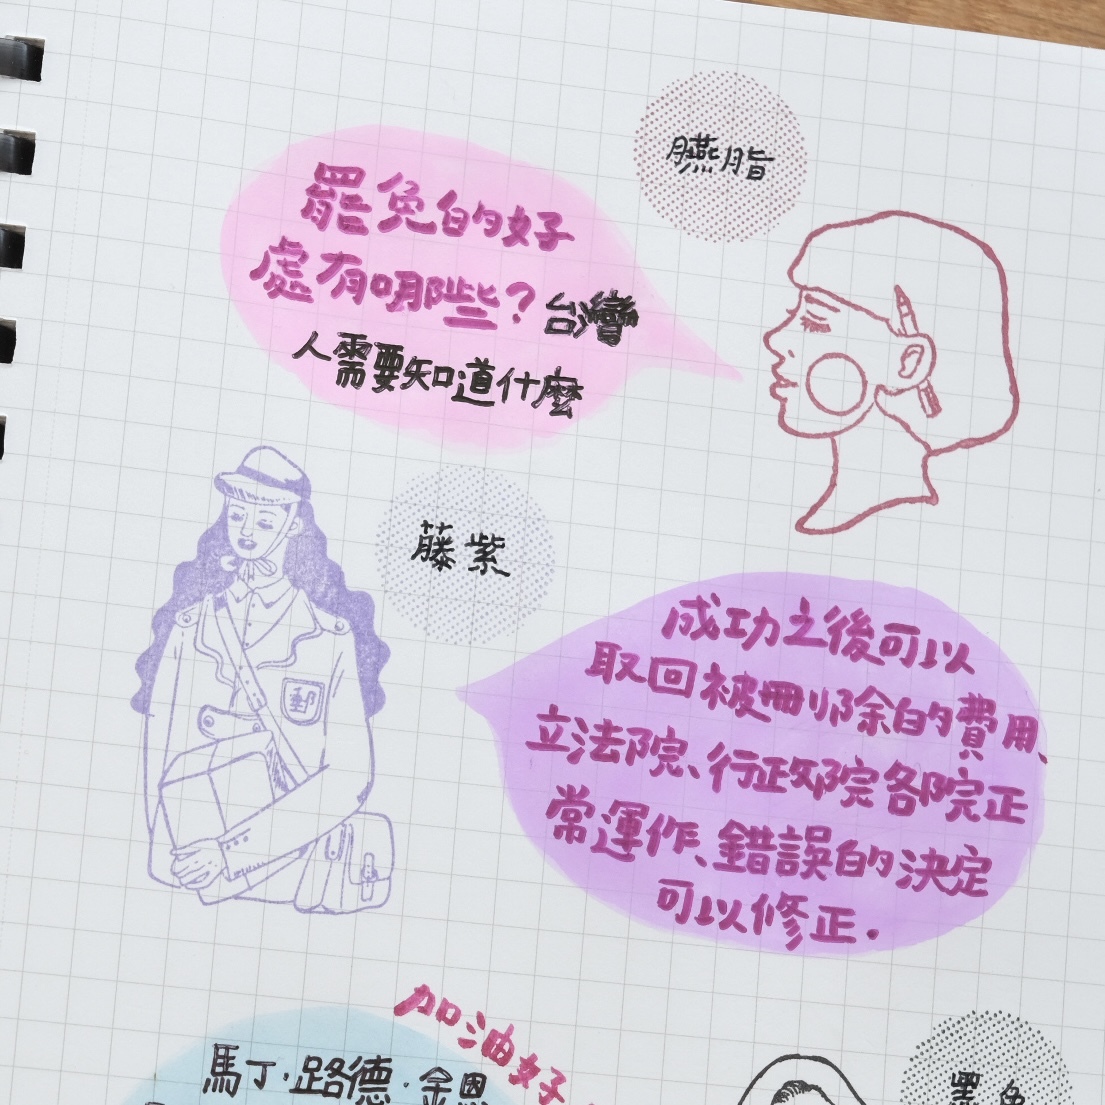 臙脂
罷免的好
處有哪些?台灣
人需要知道什麼
藤紫
郵
成功之後可以
取回被刪除的費用、
立法院、行政院各院正
常運作、錯誤的決定
可以修正.
加油好
馬丁·路德·金恩
墨色